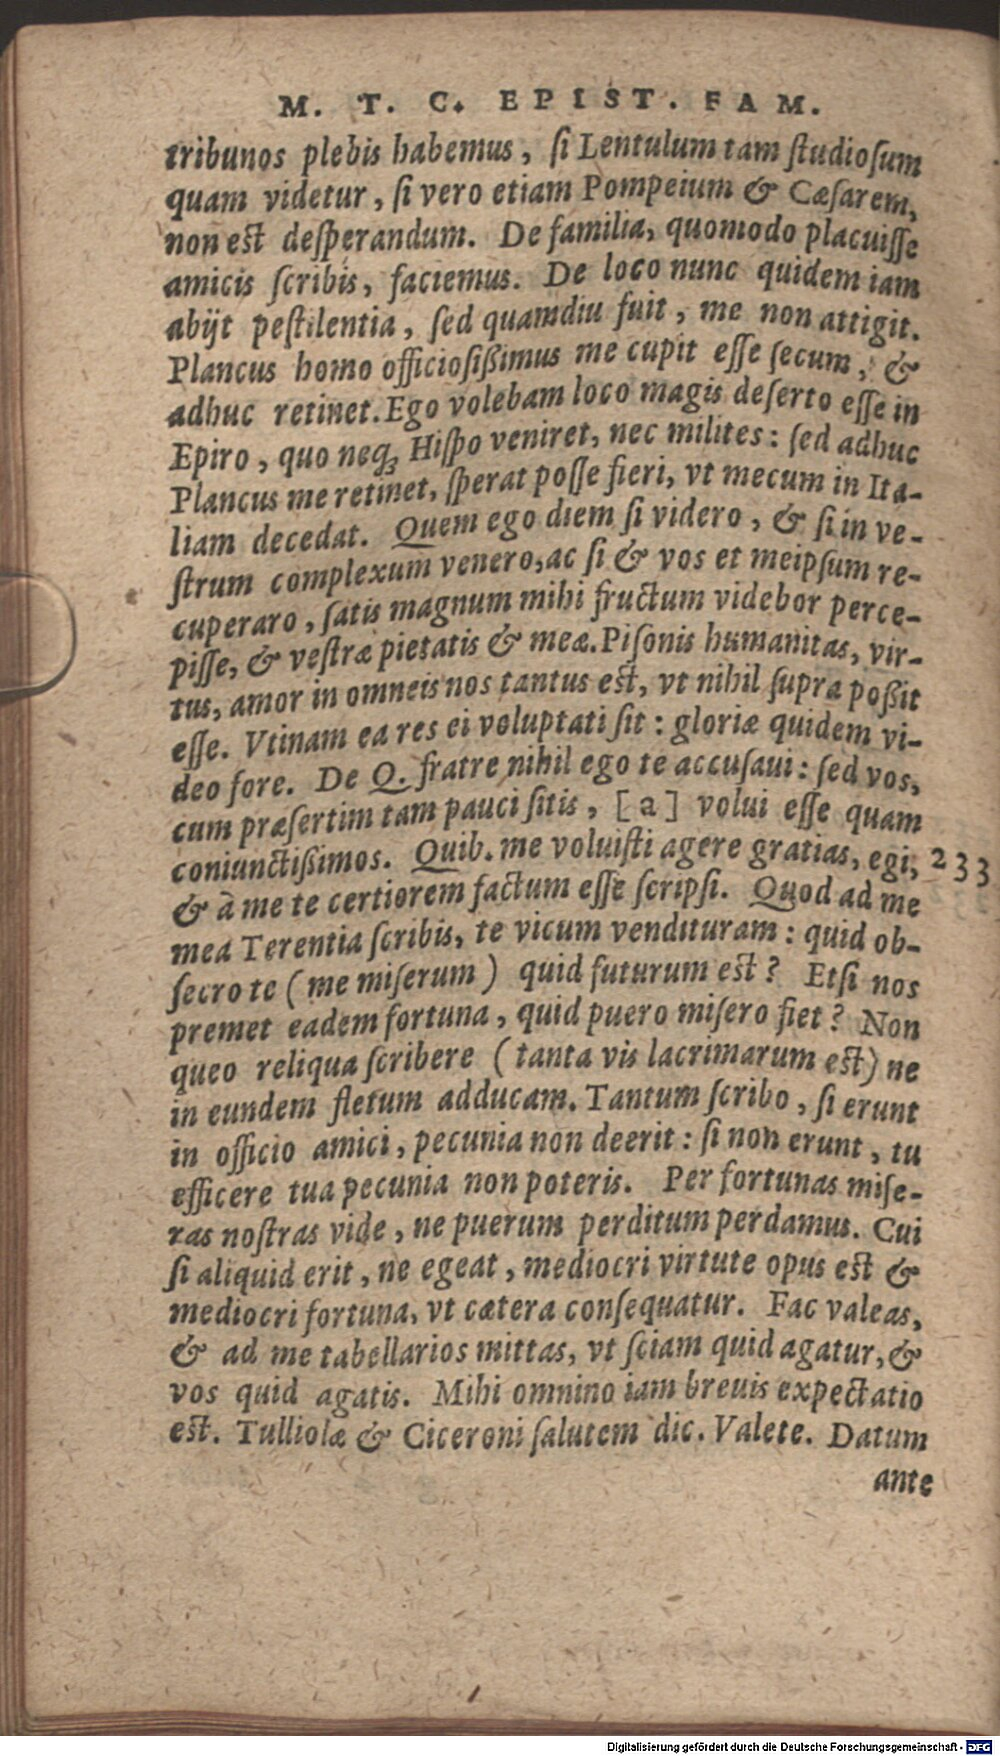 M. T. C. EPIST. FAM.
tribunos plebis habemus, ſi Lentulum tam ſtudioſum
quam videtur, ſi vero etiam Pompeium & Cæſarem,
non est deſperandum. De familia, quomodo placuiſſe
amicis ſcribis, faciemus. De loco nunc quidem iam
abijt peſtilentia, ſed quamdiu fuit, me non attigit.
Plancus homo officioſißimus me cupit eſſe ſecum, &
adhuc retinet. Ego volebam loco magis deſerto eſſe in
Epiro, quo neq; Hiſpo veniret, nec milites: ſed adhuc
Plancus me retinet, ſperat poſſe fieri, vt mecum in Ita-
liam decedat. Quem ego diem ſi videro, & ſi in ve-
ſtrum complexum venero, ac ſi & vos et meipſum re-
cuperaro, ſatis magnum mihi fructum videbor perce-
piſſe, & veſtræ pietatis & meæ. Piſonis humanitas, vir-
tus, amor in omneis nos tantus est, vt nihil ſupra poßit
eſſe. Vtinam ea res ei voluptati ſit: gloriæ quidem vi-
deo fore. De Q. fratre nihil ego te accuſaui: ſed vos,
cum præſertim tam pauci ſitis, [a] volui eſſe quam
coniunctißimos. Quib. me voluiſti agere gratias, egi, 233
& à me te certiorem factum eſſe ſcripſi. Quod ad me
mea Terentia ſcribis, te vicum vendituram: quid ob-
ſecro te (me miſerum) quid futurum est? Etſi nos
premet eadem fortuna, quid puero miſero fiet? Non
queo reliqua ſcribere (tanta vis lacrimarum est) ne
in eundem fletum adducam. Tantum ſcribo, ſi erunt
in officio amici, pecunia non deerit: ſi non erunt, tu
efficere tua pecunia non poteris. Per fortunas miſe-
ras noſtras vide, ne puerum perditum perdamus. Cui
ſi aliquid erit, ne egeat, mediocri virtute opus est &
mediocri fortuna, vt cætera conſequatur. Fac valeas,
& ad me tabellarios mittas, vt ſciam quid agatur, &
vos quid agatis. Mihi omnino iam breuis expectatio
est. Tulliolæ & Ciceroni ſalutem dic. Valete. Datum
ante
Digitalisierung gefördert durch die Deutsche Forschungsgemeinschaft - DFG